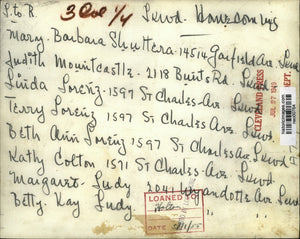 S. to R. 3 Col 1/4 Lkwd.
Mary Barbara Shuttera - 14514 Garfield Ave.
Judith Mountcastle - 2118 Ave.
Linda Lorenz - 1597 St Charles Ave.
Terry Lorenz - 1597 St Charles Ave. Lkwd.
Beth Ann Lorenz 1597 St Charles Ave. Lkwd.
Kathy Colton 1571 St Charles Lkwd.
Margaret Judy 2041 Wyandotte Ave. Lkwd.
Betty Kay Judy
CLEVELAND PRESS
DEPT.
LOANED TO
DATE